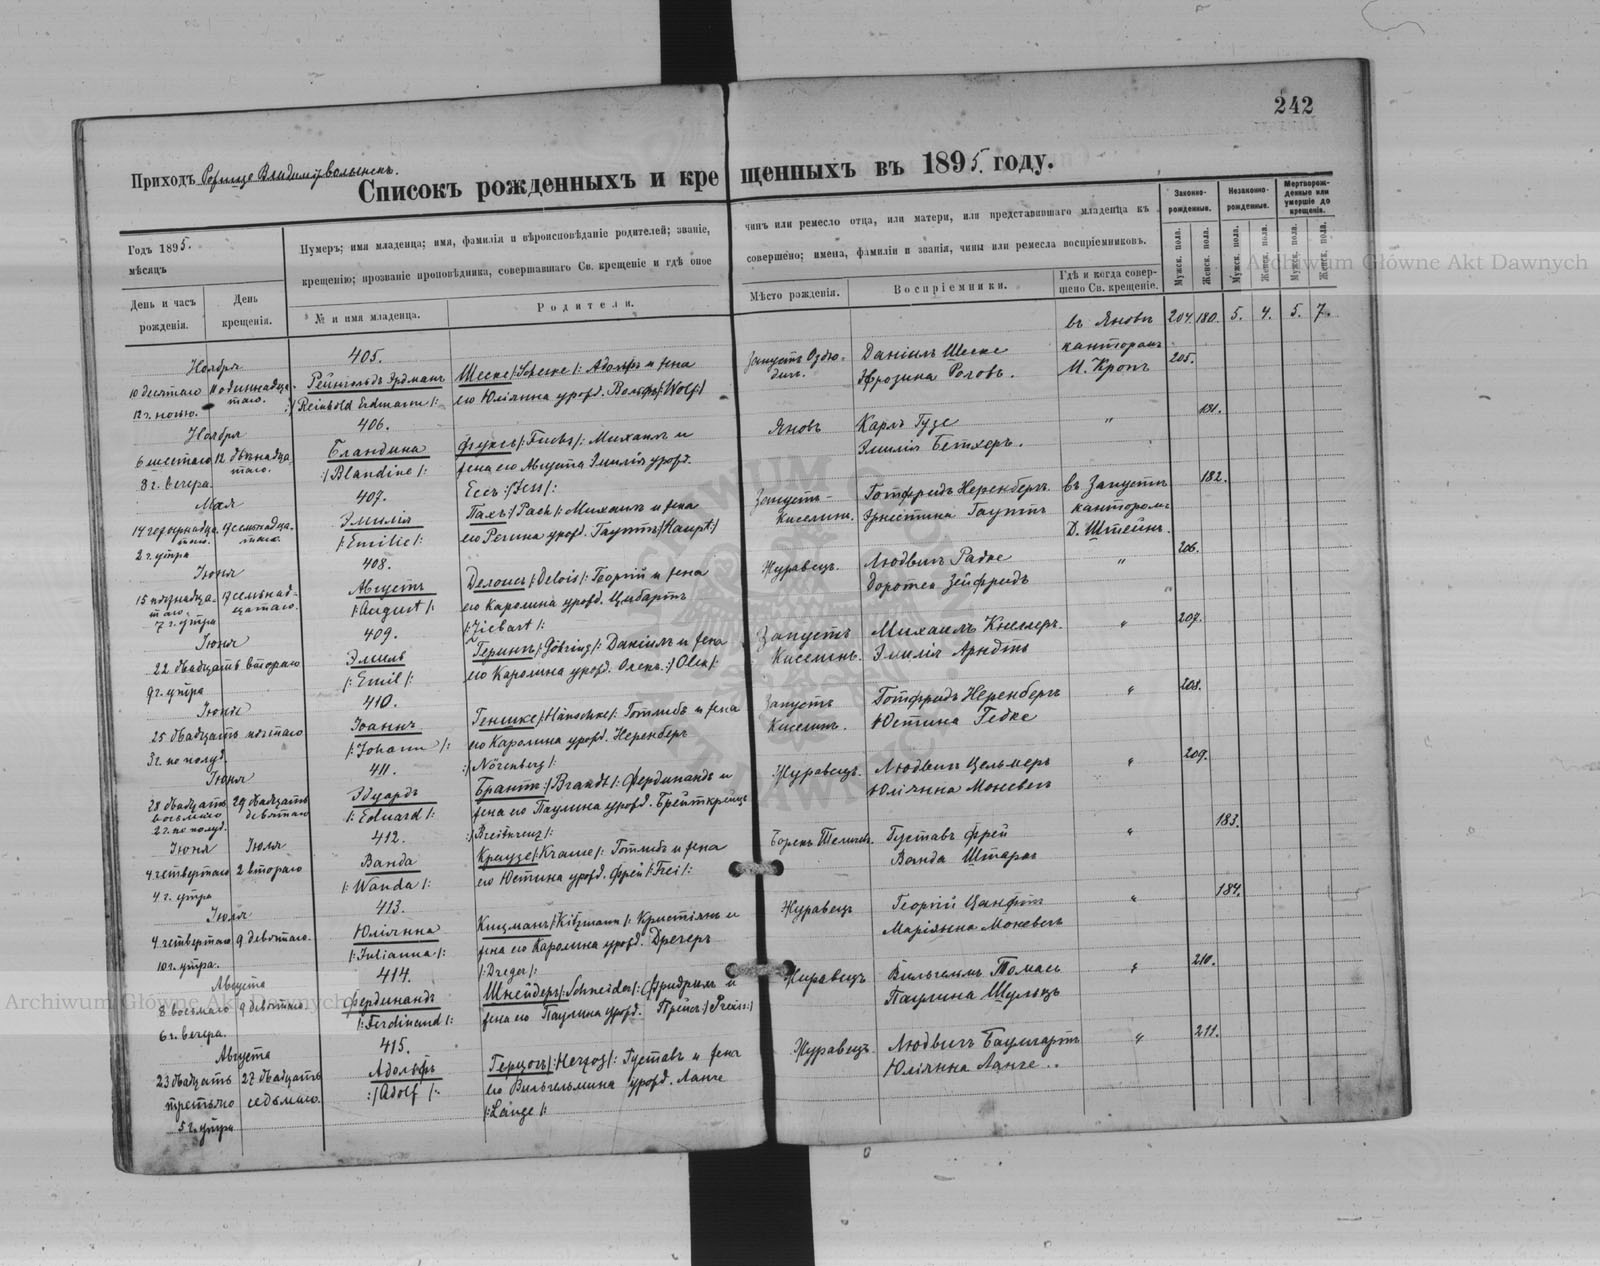 242
Приходъ Рожище Владимірволынскъ.
Списокъ рожденныхъ и крещенныхъ въ 1895. году.
Годъ 1895.
мѣсяцъ
День и часъ рожденія.
День крещенія.
Нумеръ; имя младенца; имя, фамилія и вѣроисповѣданіе родителей; званіе,
чинъ или ремесло отца, или матери, или представившаго младенца къ
крещенію; прозваніе проповѣдника, совершавшаго Св. крещеніе и гдѣ оное
совершено; имена, фамиліи и званія, чины или ремесла воспріемниковъ.
№ и имя младенца.
Родители.
Мѣсто рожденія.
Воспріемники.
Гдѣ и когда совершено Св. крещеніе.
Законнорожденные.
Незаконнорожденные.
Мертворожденные или умершіе до крещенія.
Мужск. пола.
Женск. пола.
Мужск. пола.
Женск. пола.
Мужск. пола.
Женск. пола.
въ Яновѣ 204. 180. 5. 4. 5. 7.
Ноября
405.
10 десятаго 11 одиннадцатаго.
12 г. ночью.
Рейнгольдъ Эрдманъ
/: Reinhold Erdmann /:
Шеске /: Scheske /: Адольфъ и жена
его Юліянна урожд. Вольфъ /: Wolf /:
Запустъ
Даніилъ Шеске
Ефрозина Роговъ.
канторомъ
М. Кропъ
205.
Ноября
406.
6 шестаго 12 двѣнадцатаго.
8 г. вечера.
Бландина
/: Blandine /:
Фуксъ /: Fuchs /: Михаилъ и
жена его Августа Эмилія урожд.
Ессъ /: Jess /:
Яновъ
Карлъ Гузе
Эмилія Бетхеръ.
"
181.
Мая
407.
14 четырнадцатаго. 17 семнадцатаго.
2 г. утра
Эмилія
/: Emilie /:
Пахъ /: Pach /: Михаилъ и жена
его Регина урожд. Гауптъ /: Haupt /:
Запустъ-
Киселинъ.
Готфридъ Неренбергъ.
Эрнестина Гауптъ
въ Запустѣ
канторомъ
Д. Штейнъ.
182.
Іюня
408.
15 пятнадцатаго 17 семнадцатаго.
7 г. утра
Августъ
/: August /:
Делоисъ /: Delois /: Георгій и жена
его Каролина урожд. Цибартъ
/: Ziebart /:
Журавецъ.
Людвигъ Радке
Доротея Зейфридъ
"
206.
Іюня
409.
22 двадцать втораго
9 г. утра
Эмиль
/: Emil /:
Герингъ /: Göhring /: Даніилъ и жена
его Каролина урожд. Оленъ /: Olen /:
Запустъ
Киселинъ.
Михаилъ Кнеллеръ.
Эмилія Арндтъ
"
207.
Іюня
410.
25 двадцать пятаго
3 г. по полуд.
Іоаннъ
/: Johann /:
Геншке /: Hänschke /: Готлибъ и жена
его Каролина урожд. Неренбергъ
/: Nörenberg /:
Запустъ
Киселинъ.
Готфридъ Неренбергъ
Юстина Гедке
"
208.
Іюня
411.
28 двадцать восьмаго 29 двадцать девятаго
2 г. по полуд.
Эдуардъ
/: Eduard /:
Брантъ /: Brandt /: Фердинандъ и
жена его Паулина урожд. Брейткрейцъ
/: Breitkreuz /:
Журавецъ.
Людвигъ Цельмеръ
Юліянна Моневегъ
"
209.
Іюня Іюля
412.
4 четвертаго 2 втораго
4 г. утра
Ванда
/: Wanda /:
Краузе /: Krause /: Готлибъ и жена
его Юстина урожд. Фрей /: Frei /:
Густавъ Фрей
Ванда Штаркъ
"
183.
Іюля
413.
4 четвертаго 9 девятаго.
10 г. утра.
Юліянна
/: Julianna /:
Кицманъ /: Kitzmann /: Кристіянъ и
жена его Каролина урожд. Дрегеръ
/: Dreger /:
Журавецъ
Георгій Цанфтъ
Маріянна Моневегъ
"
184.
Августа
414.
8 восьмаго 9 девятаго.
6 г. вечера.
Фердинандъ
/: Ferdinand /:
Шнейдеръ /: Schneider /: Фридрихъ и
жена его Паулина урожд. Прейсъ /: Preiss /:
Журавецъ
Вильгельмъ Томасъ
Паулина Шульцъ
"
210.
Августа
415.
23 двадцать третьяго 27 двадцать седьмаго.
5 г. утра
Адольфъ
/: Adolf /:
Герцогъ /: Herzog /: Густавъ и жена
его Вильгельмина урожд. Ланге
/: Lange /:
Журавецъ.
Людвигъ Баумгартъ
Юліянна Ланге.
"
211.
Archiwum Główne Akt Dawnych
Archiwum Główne Akt Dawnych